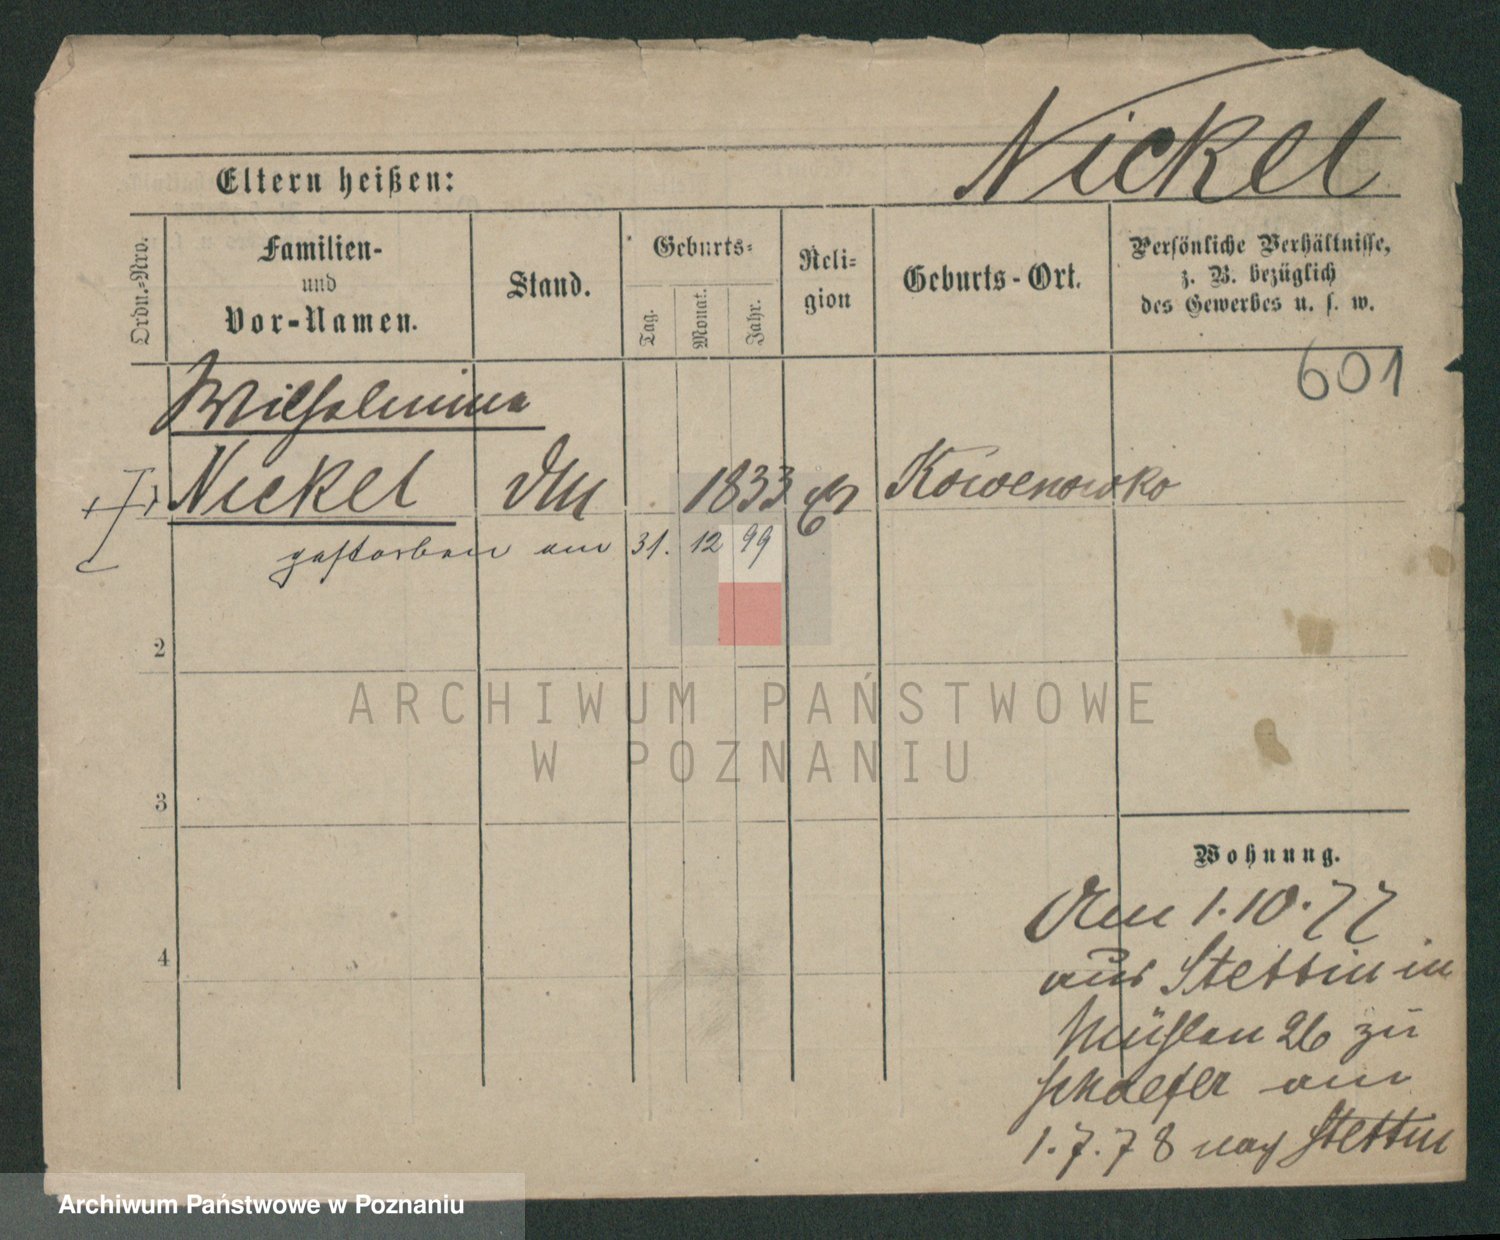 Nickel
Eltern heißen:
Ordn.-Nro.
Familien-
und
Vor-Namen.
Stand.
Geburts-
Tag.
Monat.
Jahr.
Reli-
gion
Geburts-Ort.
Persönliche Verhältnisse,
z. B. bezüglich
des Gewerbes u. s. w.
601
Wilhelmina
Nickel 1833 Kowenowko
gestorben am 31. 12 99
2
3
4
Wohnung.
Am 1.10.77
aus Stettin in
Mühlen 26 zu
Schaefer am
1.7.78 nach Stettin
ARCHIWUM PAŃSTWOWE
W POZNANIU
Archiwum Państwowe w Poznaniu